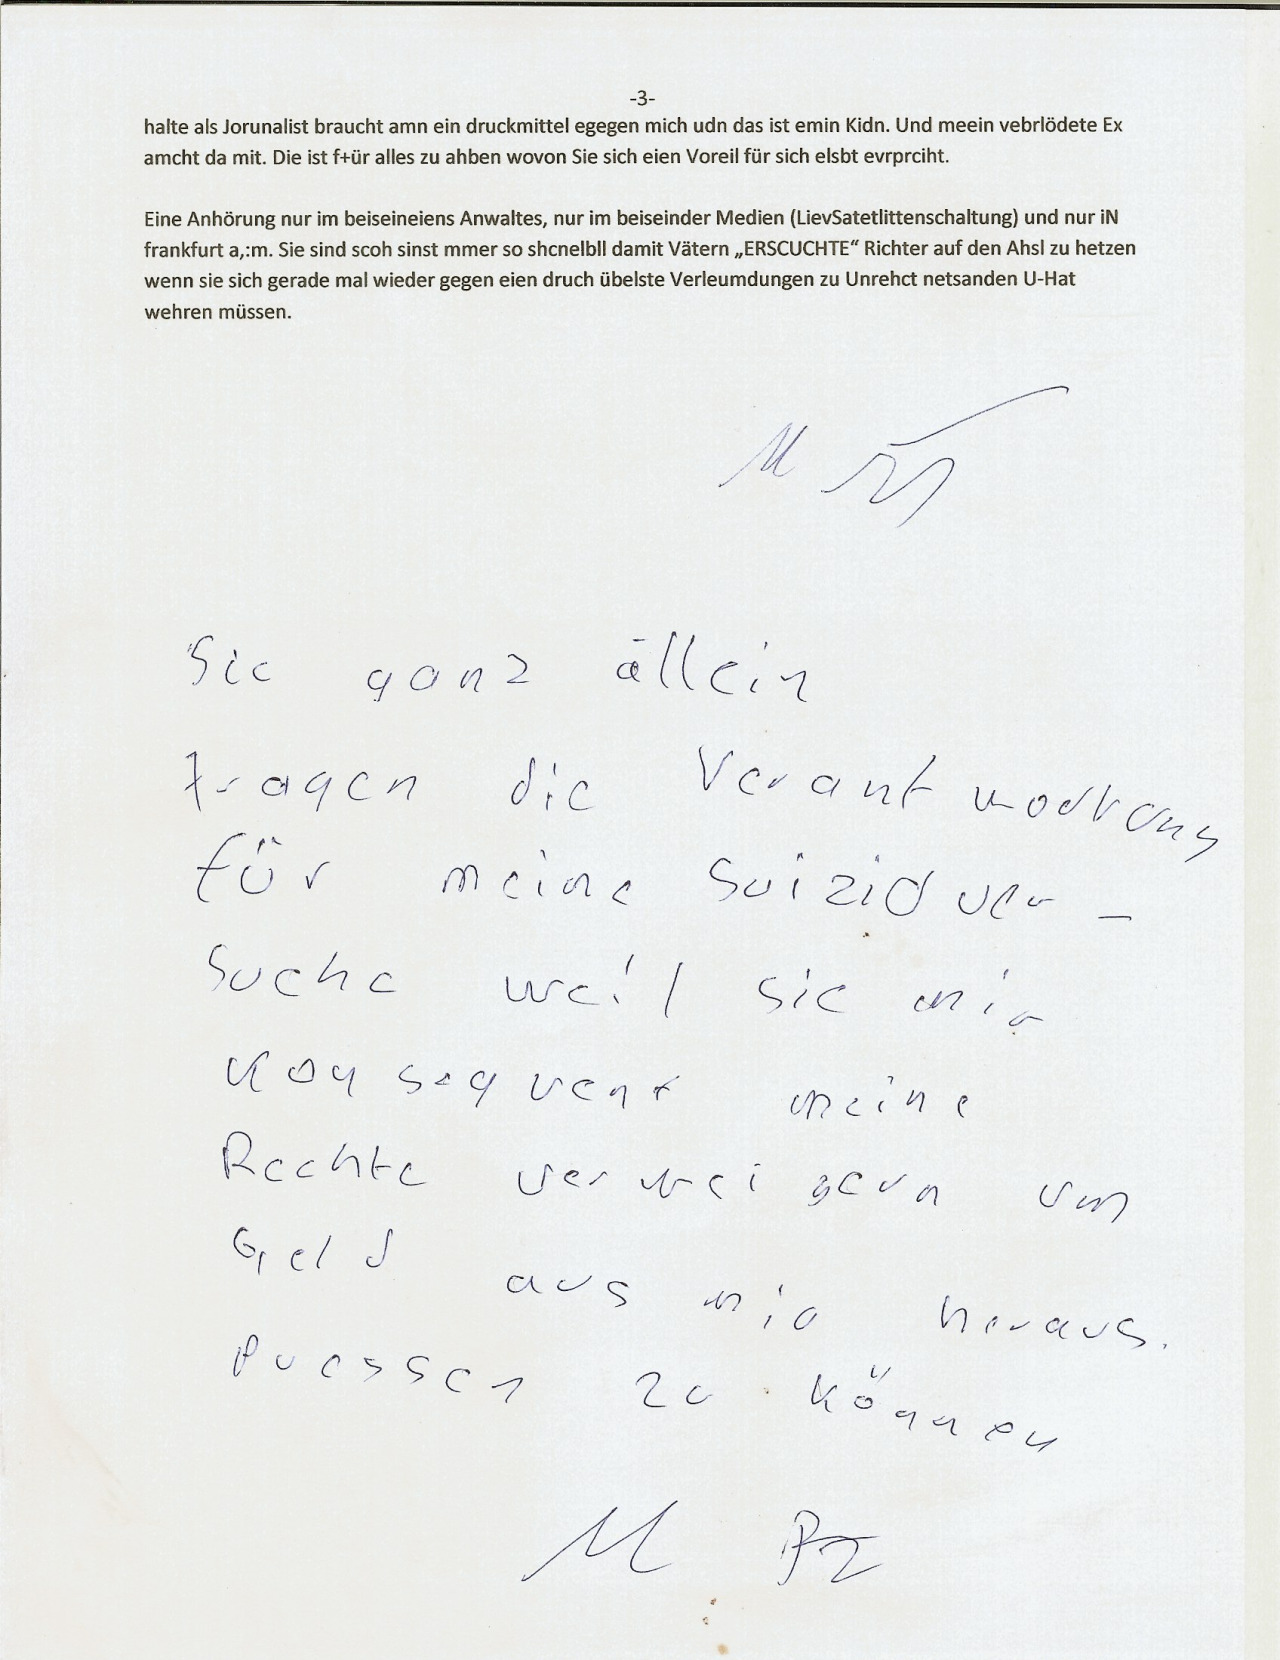 -3-
halte als Jorunalist braucht amn ein druckmittel egegen mich udn das ist emin Kidn. Und meein vebrlödete Ex
amcht da mit. Die ist f+ür alles zu ahben wovon Sie sich eien Voreil für sich elsbt evrprciht.
Eine Anhörung nur im beiseineiens Anwaltes, nur im beiseinder Medien (LievSatetlittenschaltung) und nur iN
frankfurt a,:m. Sie sind scoh sinst mmer so shcnelbll damit Vätern „ERSCUCHTE“ Richter auf den Ahsl zu hetzen
wenn sie sich gerade mal wieder gegen eien druch übelste Verleumdungen zu Unrehct netsanden U-Hat
wehren müssen.
Sie ganz allein
tragen die Verantwortung
für meine Suizidver-
suche weil sie mir
konsequent meine
Rechte verweigern um
Geld aus mir heraus.
pressen zu können